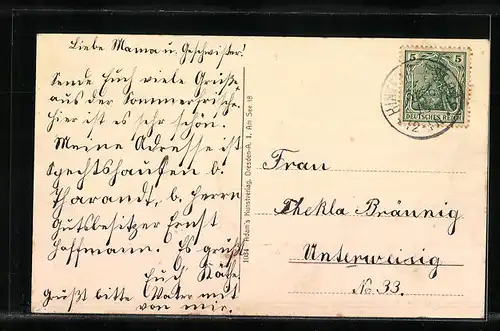 Liebe Mama u. Geschwister!
Sende Euch viele Grüße
aus der Sommerfrische.
Hier ist es sehr schön.
Meine Adresse ist
Spechtshausen b.
Tharandt, b. Herrn
Gutsbesitzer Ernst
Hoffmann. Es grüßt
Euch Käthe
Grüßt bitte Vater mit
von mir.
11084 Adam's Kunstverlag, Dresden-A. 1, Am See 18
5 5
DEUTSCHES REICH
Frau
Thekla Bräunig
Unterweisig
No. 33.